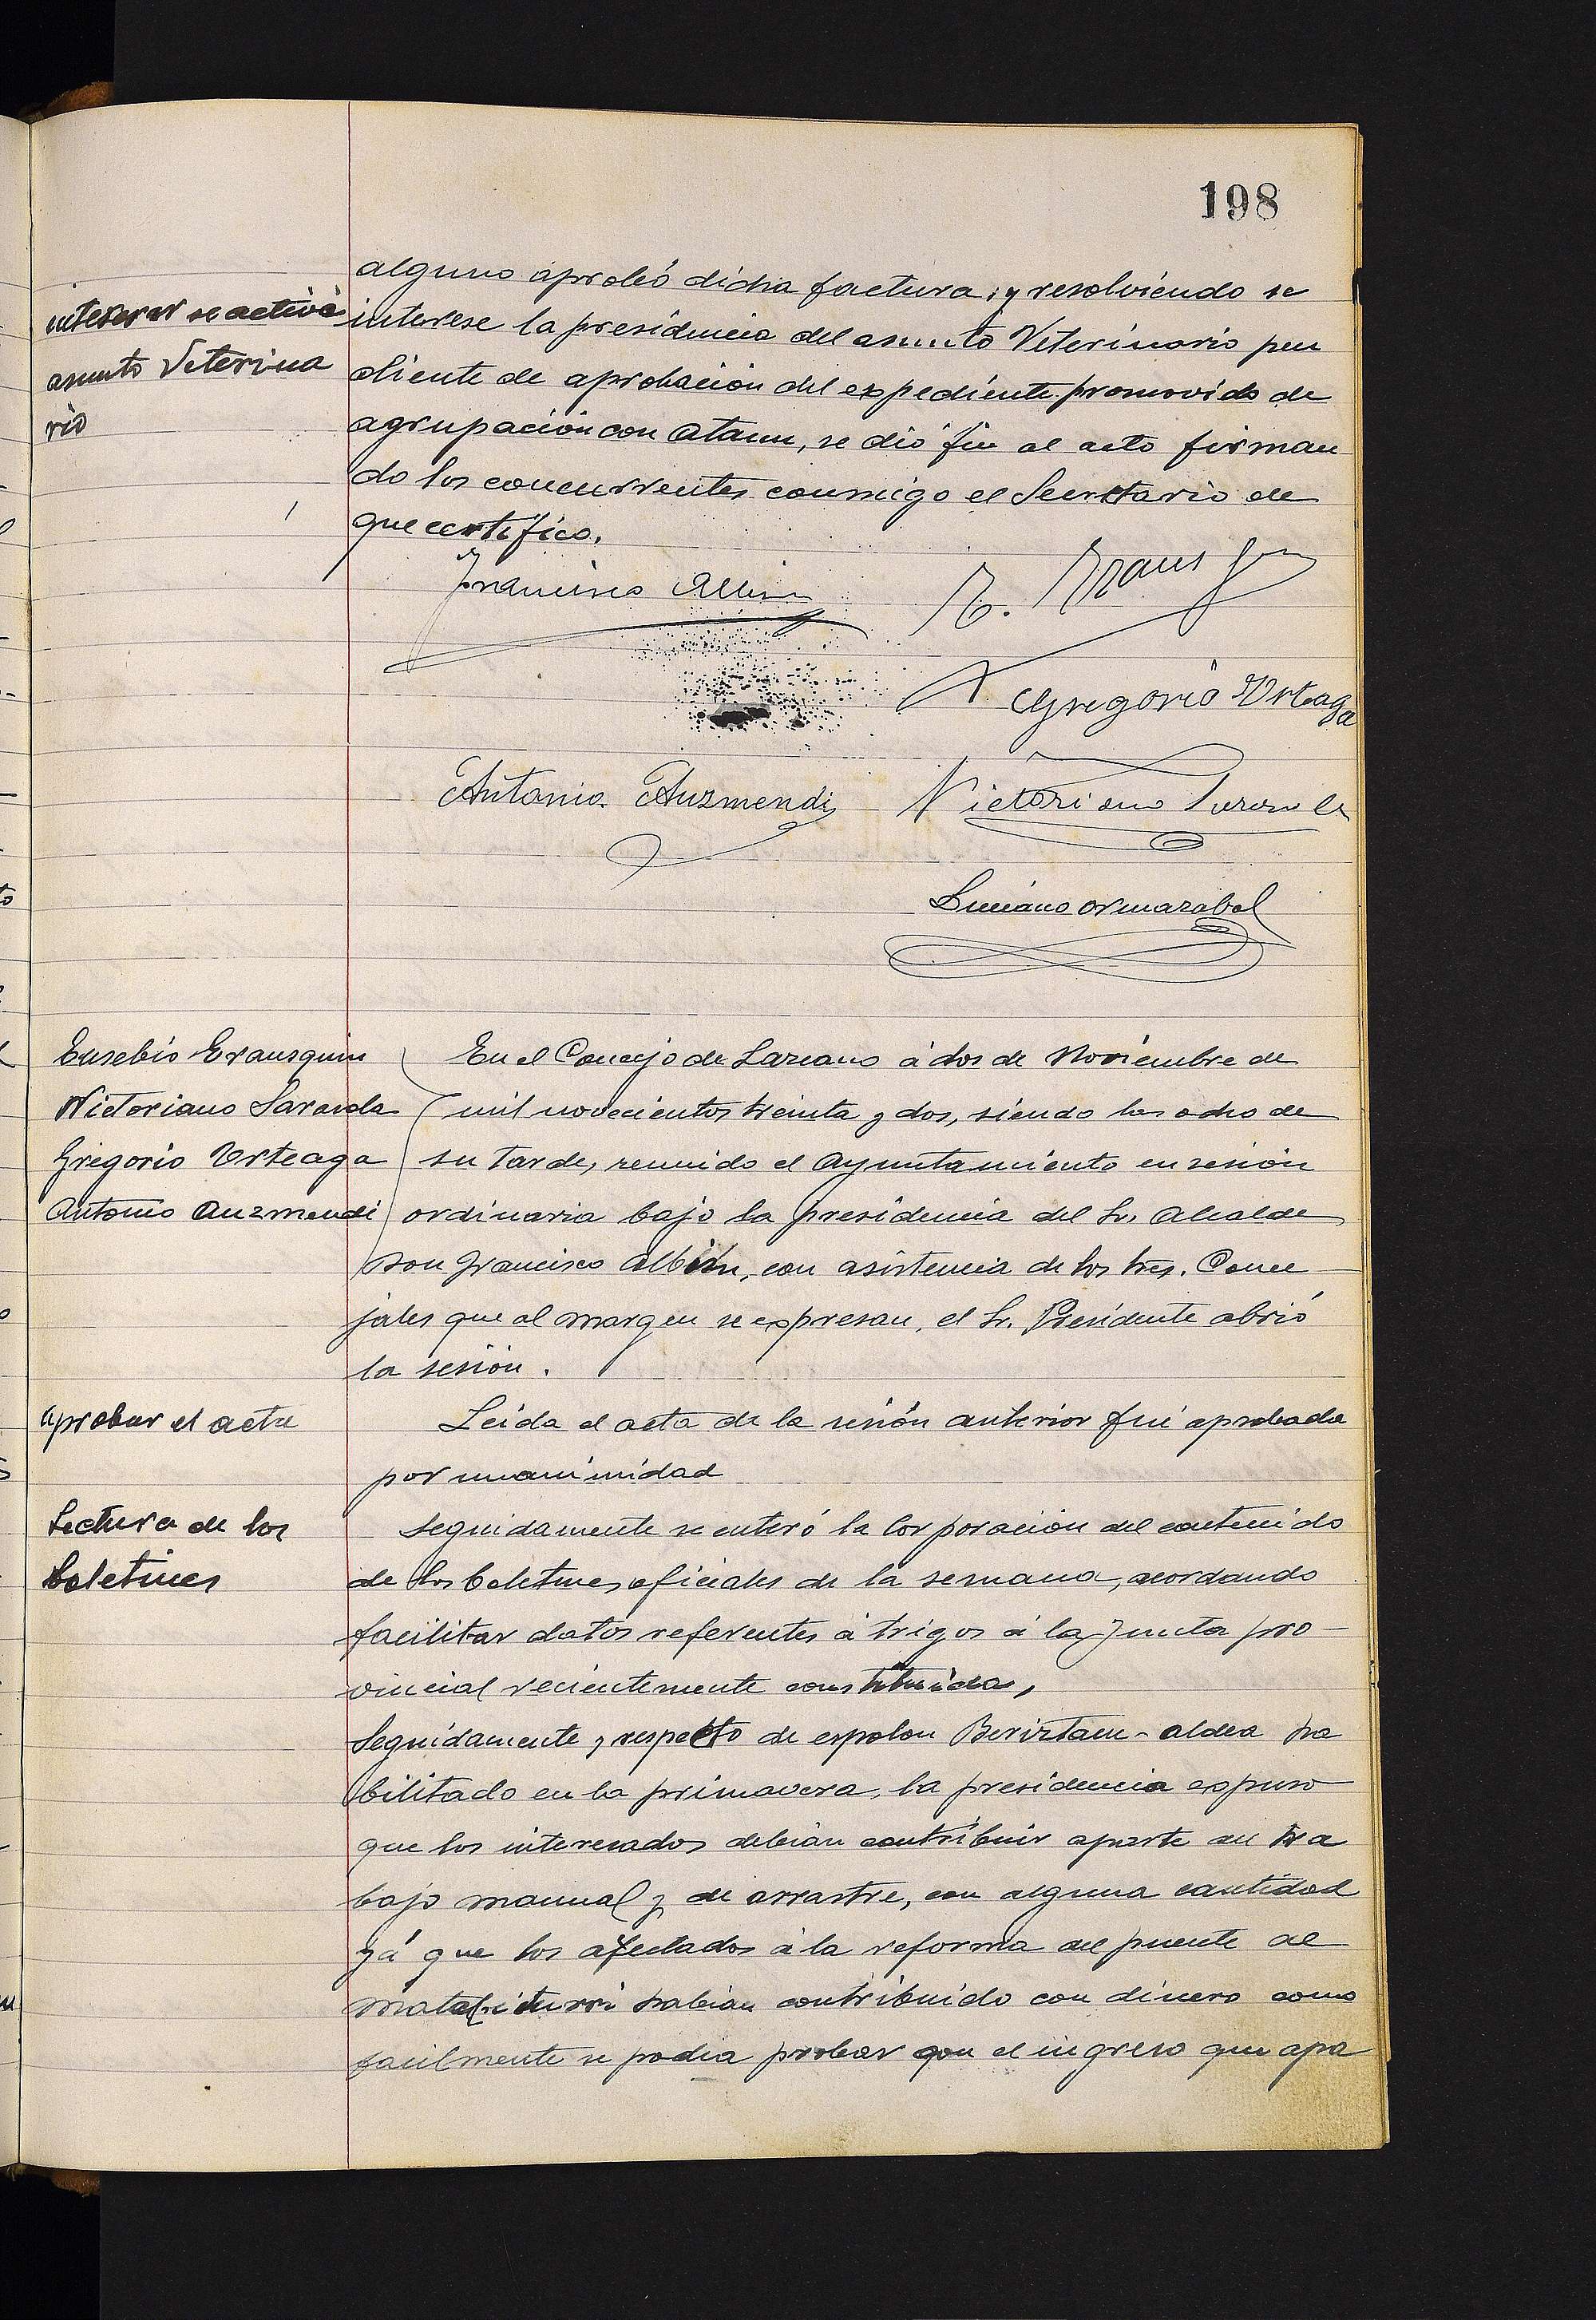 198
interesar se active
asunto Veterina
rio
alguno aprobó dicha factura, y resolviendo se
interese la presidencia del asunto Veterinario pen
diente de aprobación del expediente promovido de
agrupación con Ataun, se dió fin al acto firman
do los concurrentes conmigo el Secretario de
que certifico.
Francisco Albisu
Gregorio Urteaga
Antonio Auzmendi
Victoriano
Luciano Ormazabal
Eusebio Erausquin
Victoriano Sarasola
Gregorio Urteaga
Antonio Auzmendi
En el Concejo de Lazcano á dos de Noviembre de
mil novecientos treinta y dos, siendo las ocho de
su tarde, reunido el Ayuntamiento en sesión
ordinaria bajo la presidencia del Sr. Alcalde
Don Francisco Albisu, con asistencia de los Sres. Conce
jales que al margen se expresan, el Sr. Presidente abrió
la sesión.
aprobar el acta
Leida el acta de la sesión anterior fué aprobada
por unanimidad
Lectura de los
boletines
Seguidamente se enteró la Corporación del contenido
de los boletines oficiales de la semana, acordando
facilitar datos referentes á trigos á la Junta pro-
vincial recientemente constituida,
Seguidamente y respecto de espolon Beriztain-aldea ha
bilitado en la primavera, la presidencia expuso
que los interesados debian contribuir aparte su tra
bajo manual y de arrastre, con alguna cantidad
yá que los afectados á la reforma del puente de
habian contribuido con dinero como
facilmente se podia probar con el ingreso que apa